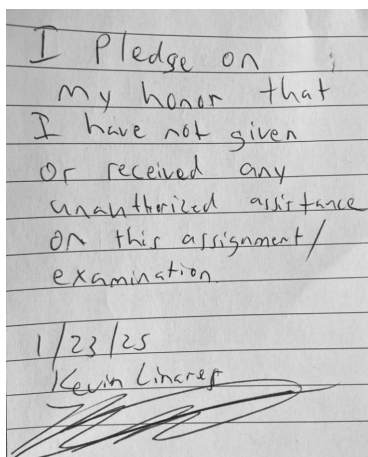 I Pledge on
my honor that
I have not given
or received any
unauthorized assistance
on this assignment/
examination.
1/23/25
Kevin Linares